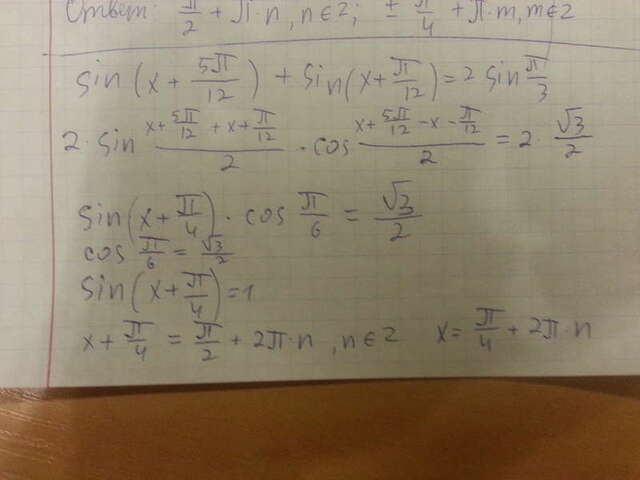 Ответ: π/2 + π·n, n∈z; ± π/4 + π·m, m∈z
Sin(x + 5π/12) + Sin(x + π/12) = 2 Sin π/3
2·Sin (x + 5π/12 + x + π/12)/2 · cos (x + 5π/12 - x - π/12)/2 = 2·√3/2
Sin(x + π/4)·cos π/6 = √3/2
cos π/6 = √3/2
Sin(x + π/4) = 1
x + π/4 = π/2 + 2π·n, n∈z x = π/4 + 2π·n